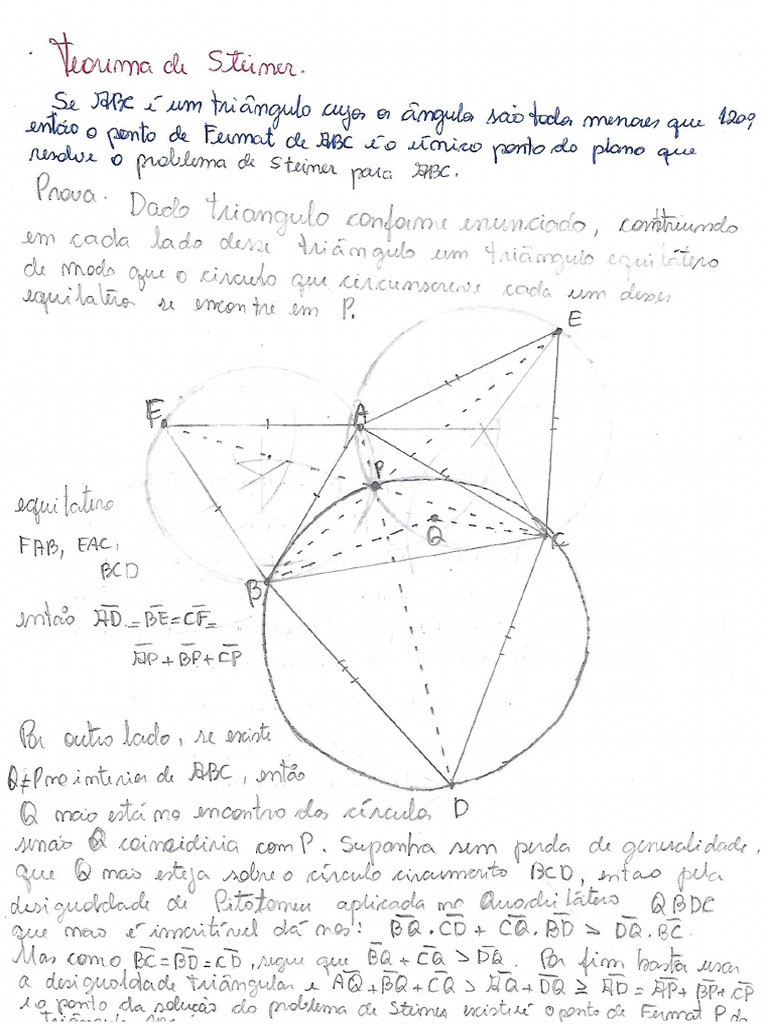 Teorema de Steiner.
Se ABC é um triângulo cujos os ângulos são todos menores que 120º,
então o ponto de Fermat de ABC é o único ponto do plano que
resolve o problema de Steiner para ABC.
Prova. Dado triangulo conforme enunciado, construindo
em cada lado desse triângulo um triângulo equilátero
de modo que o circulo que circunscreve cada um desses
equilatéro se encontre em P.
E
F
A
P
Q
C
B
D
equilatero
FAB, EAC,
BCD
então AD = BE = CF =
AP + BP + CP
Por outro lado, se existe
Q≠P no interior de ABC, então
Q não está no encontro dos círculos
senão Q coincidiria com P. Suponha sem perda de generalidade,
que Q não esteja sobre o círculo circunscrito BCD, entao pela
desigualdade de Ptotomeu aplicada no Quadrilátero QBDC
que não é inscritível dá nos: BQ · CD + CQ · BD > DQ · BC.
Mas como BC = BD = CD, segue que BQ + CQ > DQ. Por fim basta usar
a desigualdade triângular e AQ + BQ + CQ > AQ + DQ ≥ AD = AP + BP + CP
e o ponto da solução do problema de Steiner existir é o ponto de Fermat P do
triângulo ABC